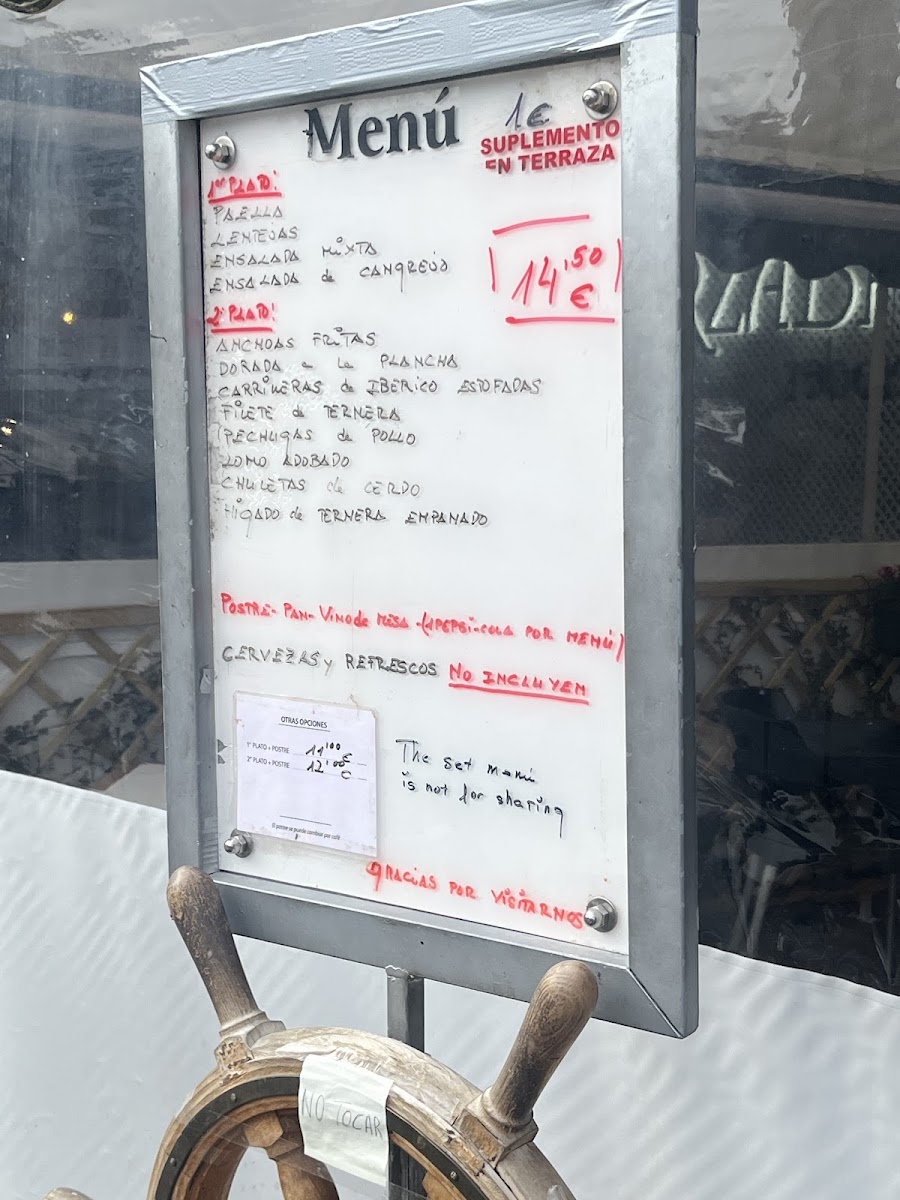 Menú
1€
SUPLEMENTO
EN TERRAZA
1er PLATO:
PAELLA
LENTEJAS
ENSALADA MIXTA
ENSALADA de CANGREJO
14,50
€
2º PLATO:
ANCHOAS FRITAS
DORADA a la PLANCHA
CARRILLERAS de IBERICO ESTOFADAS
FILETE de TERNERA
PECHUGAS de POLLO
LOMO ADOBADO
CHULETAS de CERDO
HIGADO de TERNERA EMPANADO
POSTRE- PAN- VINO de MESA -(1 PEPSI-COLA POR MENÚ)
CERVEZAS y REFRESCOS NO INCLUYEN
OTRAS OPCIONES
1º PLATO + POSTRE 11'00 €
2º PLATO + POSTRE 12'00 €
El postre se puede cambiar por café
The set menú
is not for sharing
GRACIAS POR VISITARNOS
NO TOCAR